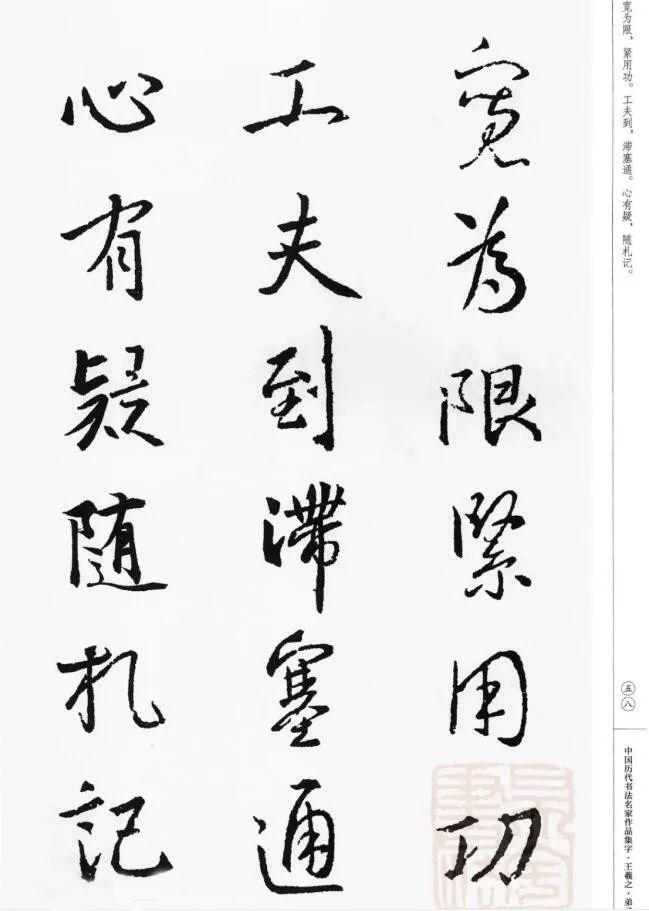 宽为限，紧用功。工夫到，滞塞通。心有疑，随札记。
寬為限緊用功
工夫到滯塞通
心有疑随札記
五八
中国历代书法名家作品集字·王羲之·弟